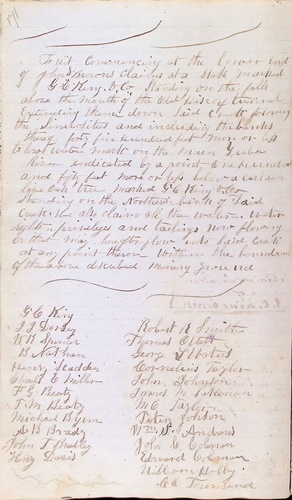 To wit Commencing at the lower end
of John Barons claims at a stake marked
G E King & Co, Standing on the falls
above the mouth of the Old Hickory tunnel
Extending thence down said Creek following
the Sinuosities and including the banks
thereof Forty five hundred feet more or less
to low water mark on the main Yuba
River indicated by a point One Hundred
and fifty feet more or less below a certain
live Oak tree marked G E King & Co
Standing on the Northern bank of Said
Creek. We also claim all the water. water
rights privileges and tailings now flowing
or that may heafter flow into said Creek
at any point thereon within the boundaries
of the above discribed mining ground
G E King
J J Dorsey
W H Spencer
B Nathan
Henry Scadden
Charles E Miller
F G Beaty
T M Beaty
Michael Byrne
A B Brady
John T Bradley
Hug Davis
Robert R Smith
Thomas
George
Cornelius Taylor
John Johnston
James M Bateman
M C Taylor
Peter
Wm S Andrews
John C Coleman
Edward C Coleman
William Holby
C A Townsend